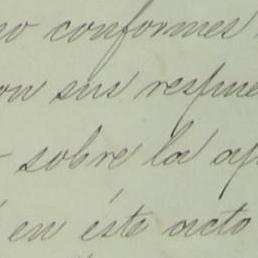 no conformes
on sus respue
sobre la ap
en éste acto